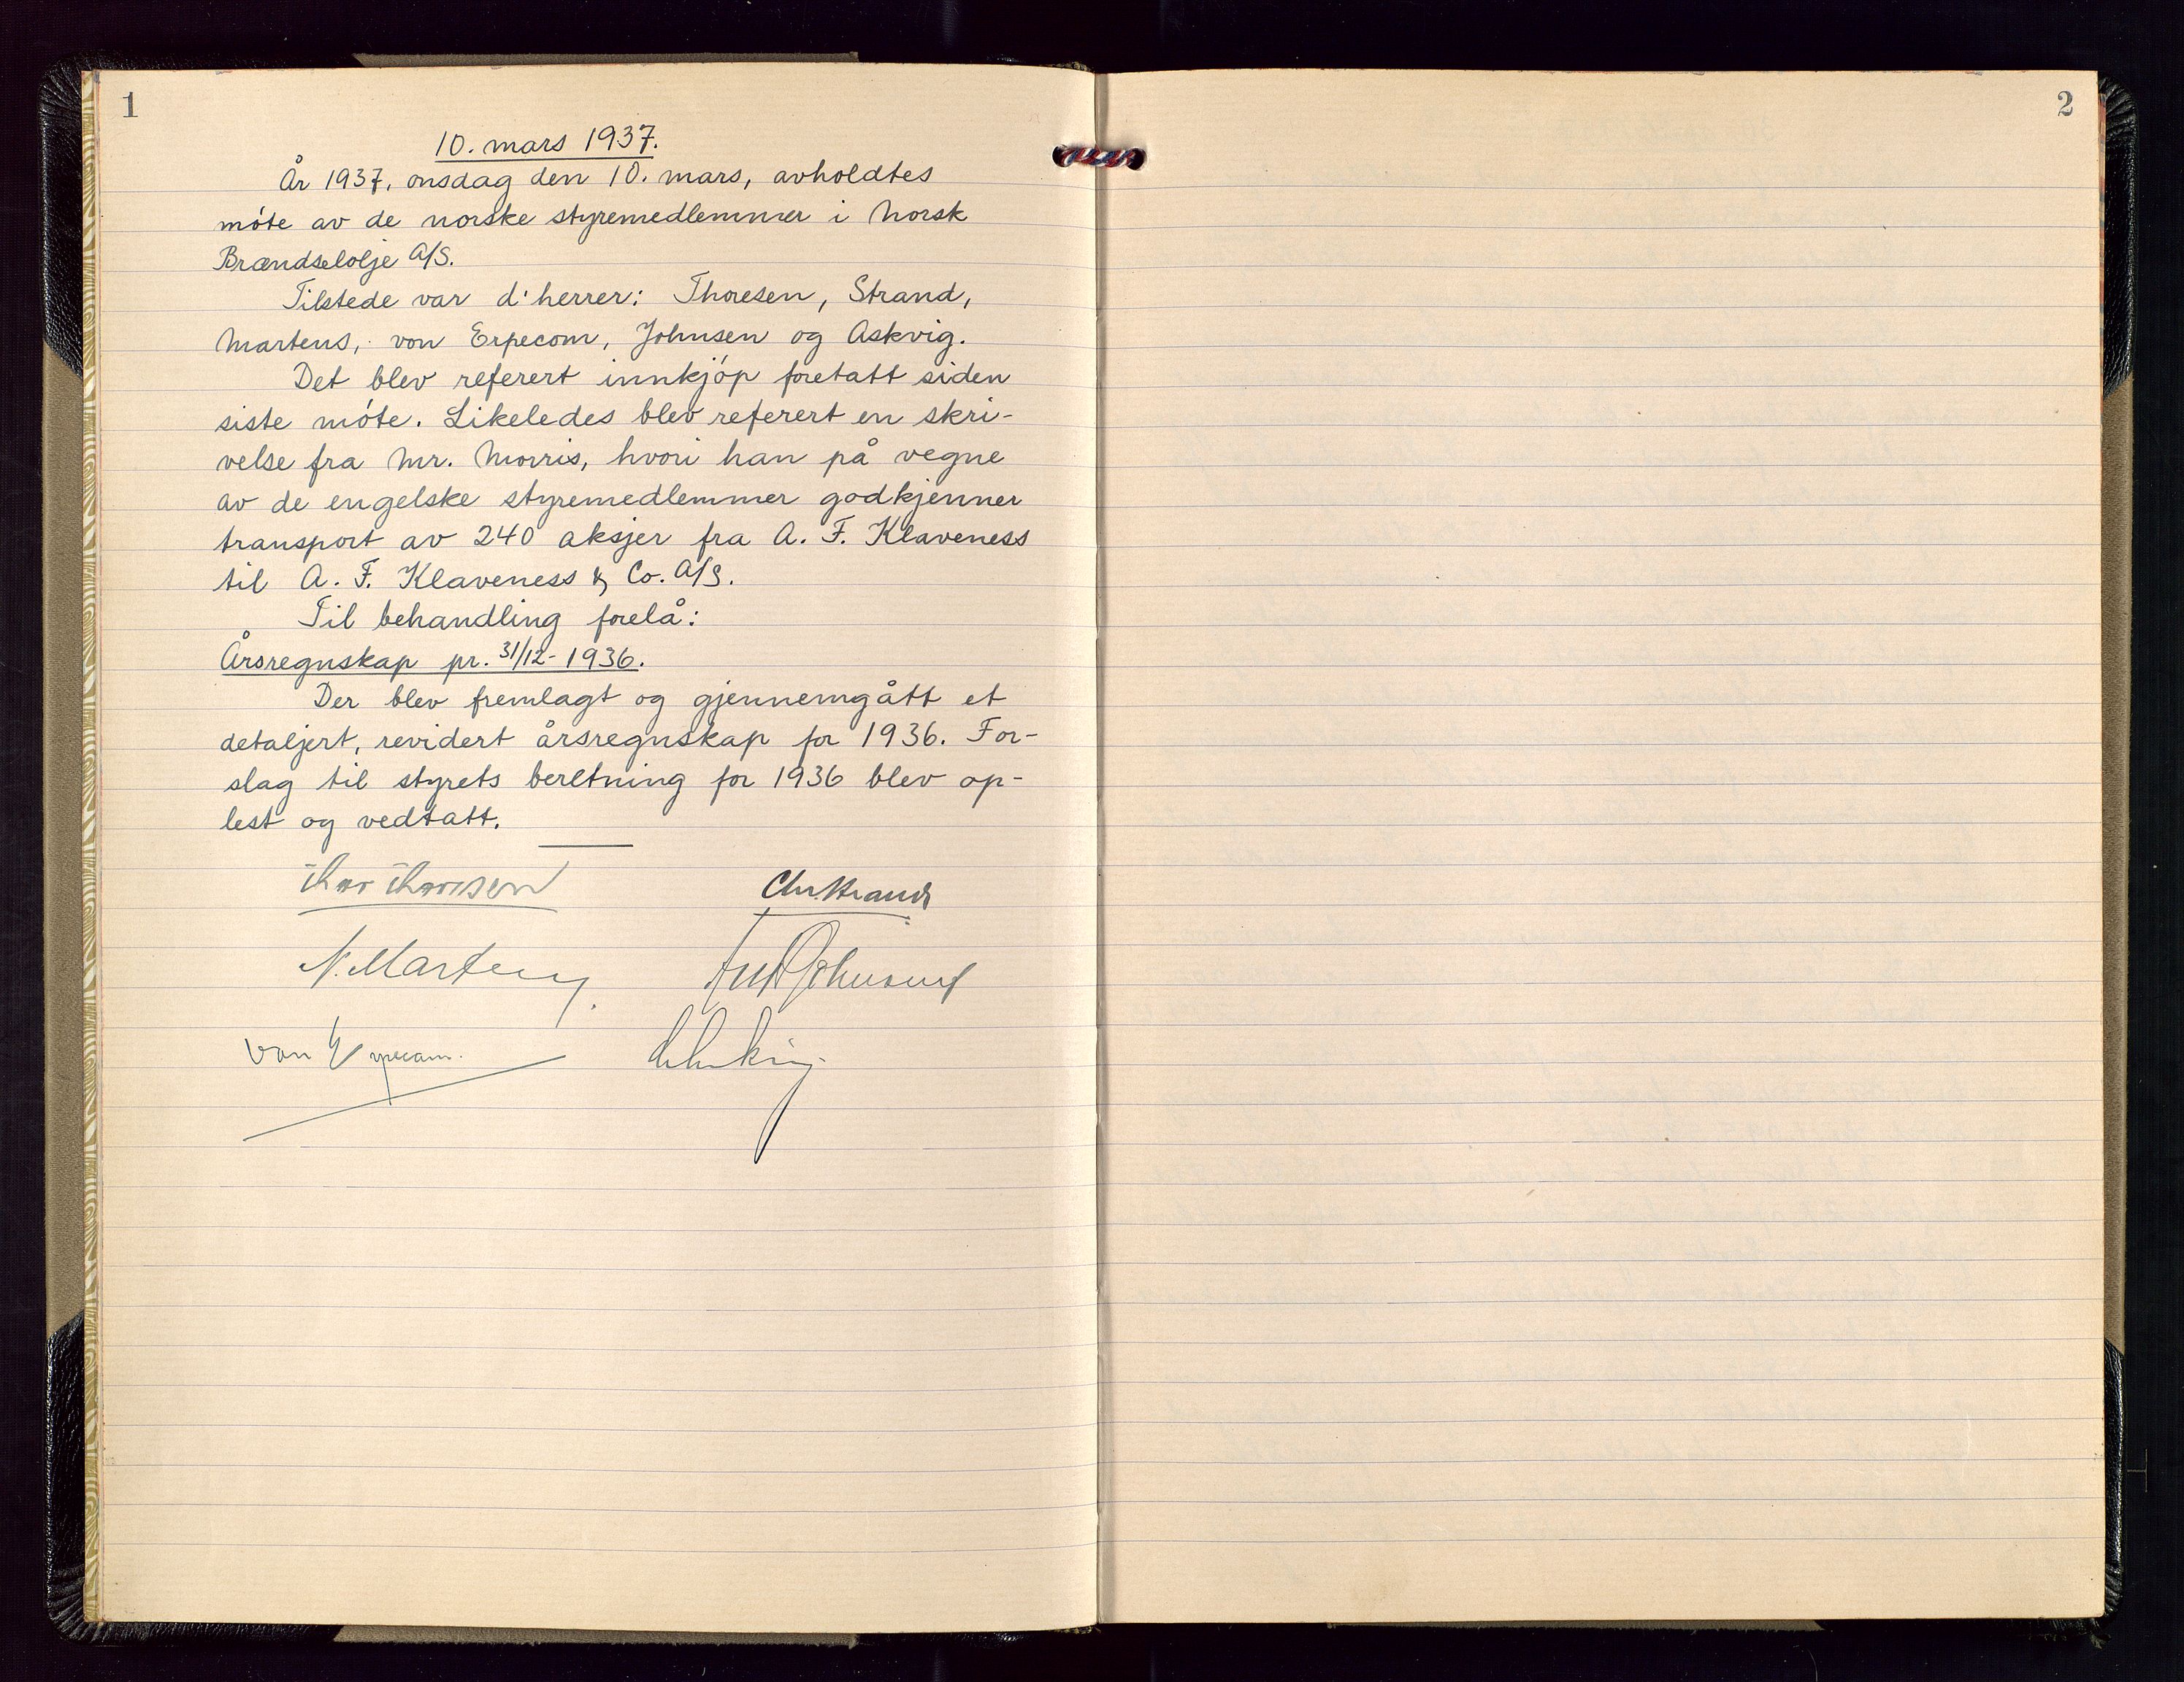 1
10. mars 1937.
År 1937, onsdag den 10. mars, avholdtes
møte av de norske styremedlemmer i Norsk
Brændselolje A/S.
Tilstede var d'herrer: Thoresen, Strand,
Martens, von Erpecom, Johnsen og Askvig.
Det blev referert innkjøp foretatt siden
siste møte. Likeledes blev referert en skri-
velse fra Mr. Morris, hvori han på vegne
av de engelske styremedlemmer godkjenner
transport av 240 aksjer fra A. F. Klaveness
til A. F. Klaveness & Co. A/S.
Til behandling forelå:
Årsregnskap pr. 31/12-1936.
Der blev fremlagt og gjennemgått et
detaljert, revidert årsregnskap for 1936. For-
slag til styrets beretning for 1936 blev op-
lest og vedtatt.
Thor Thoresen Chr. Strand
N. Martens Johnsen
von Erpecom
2